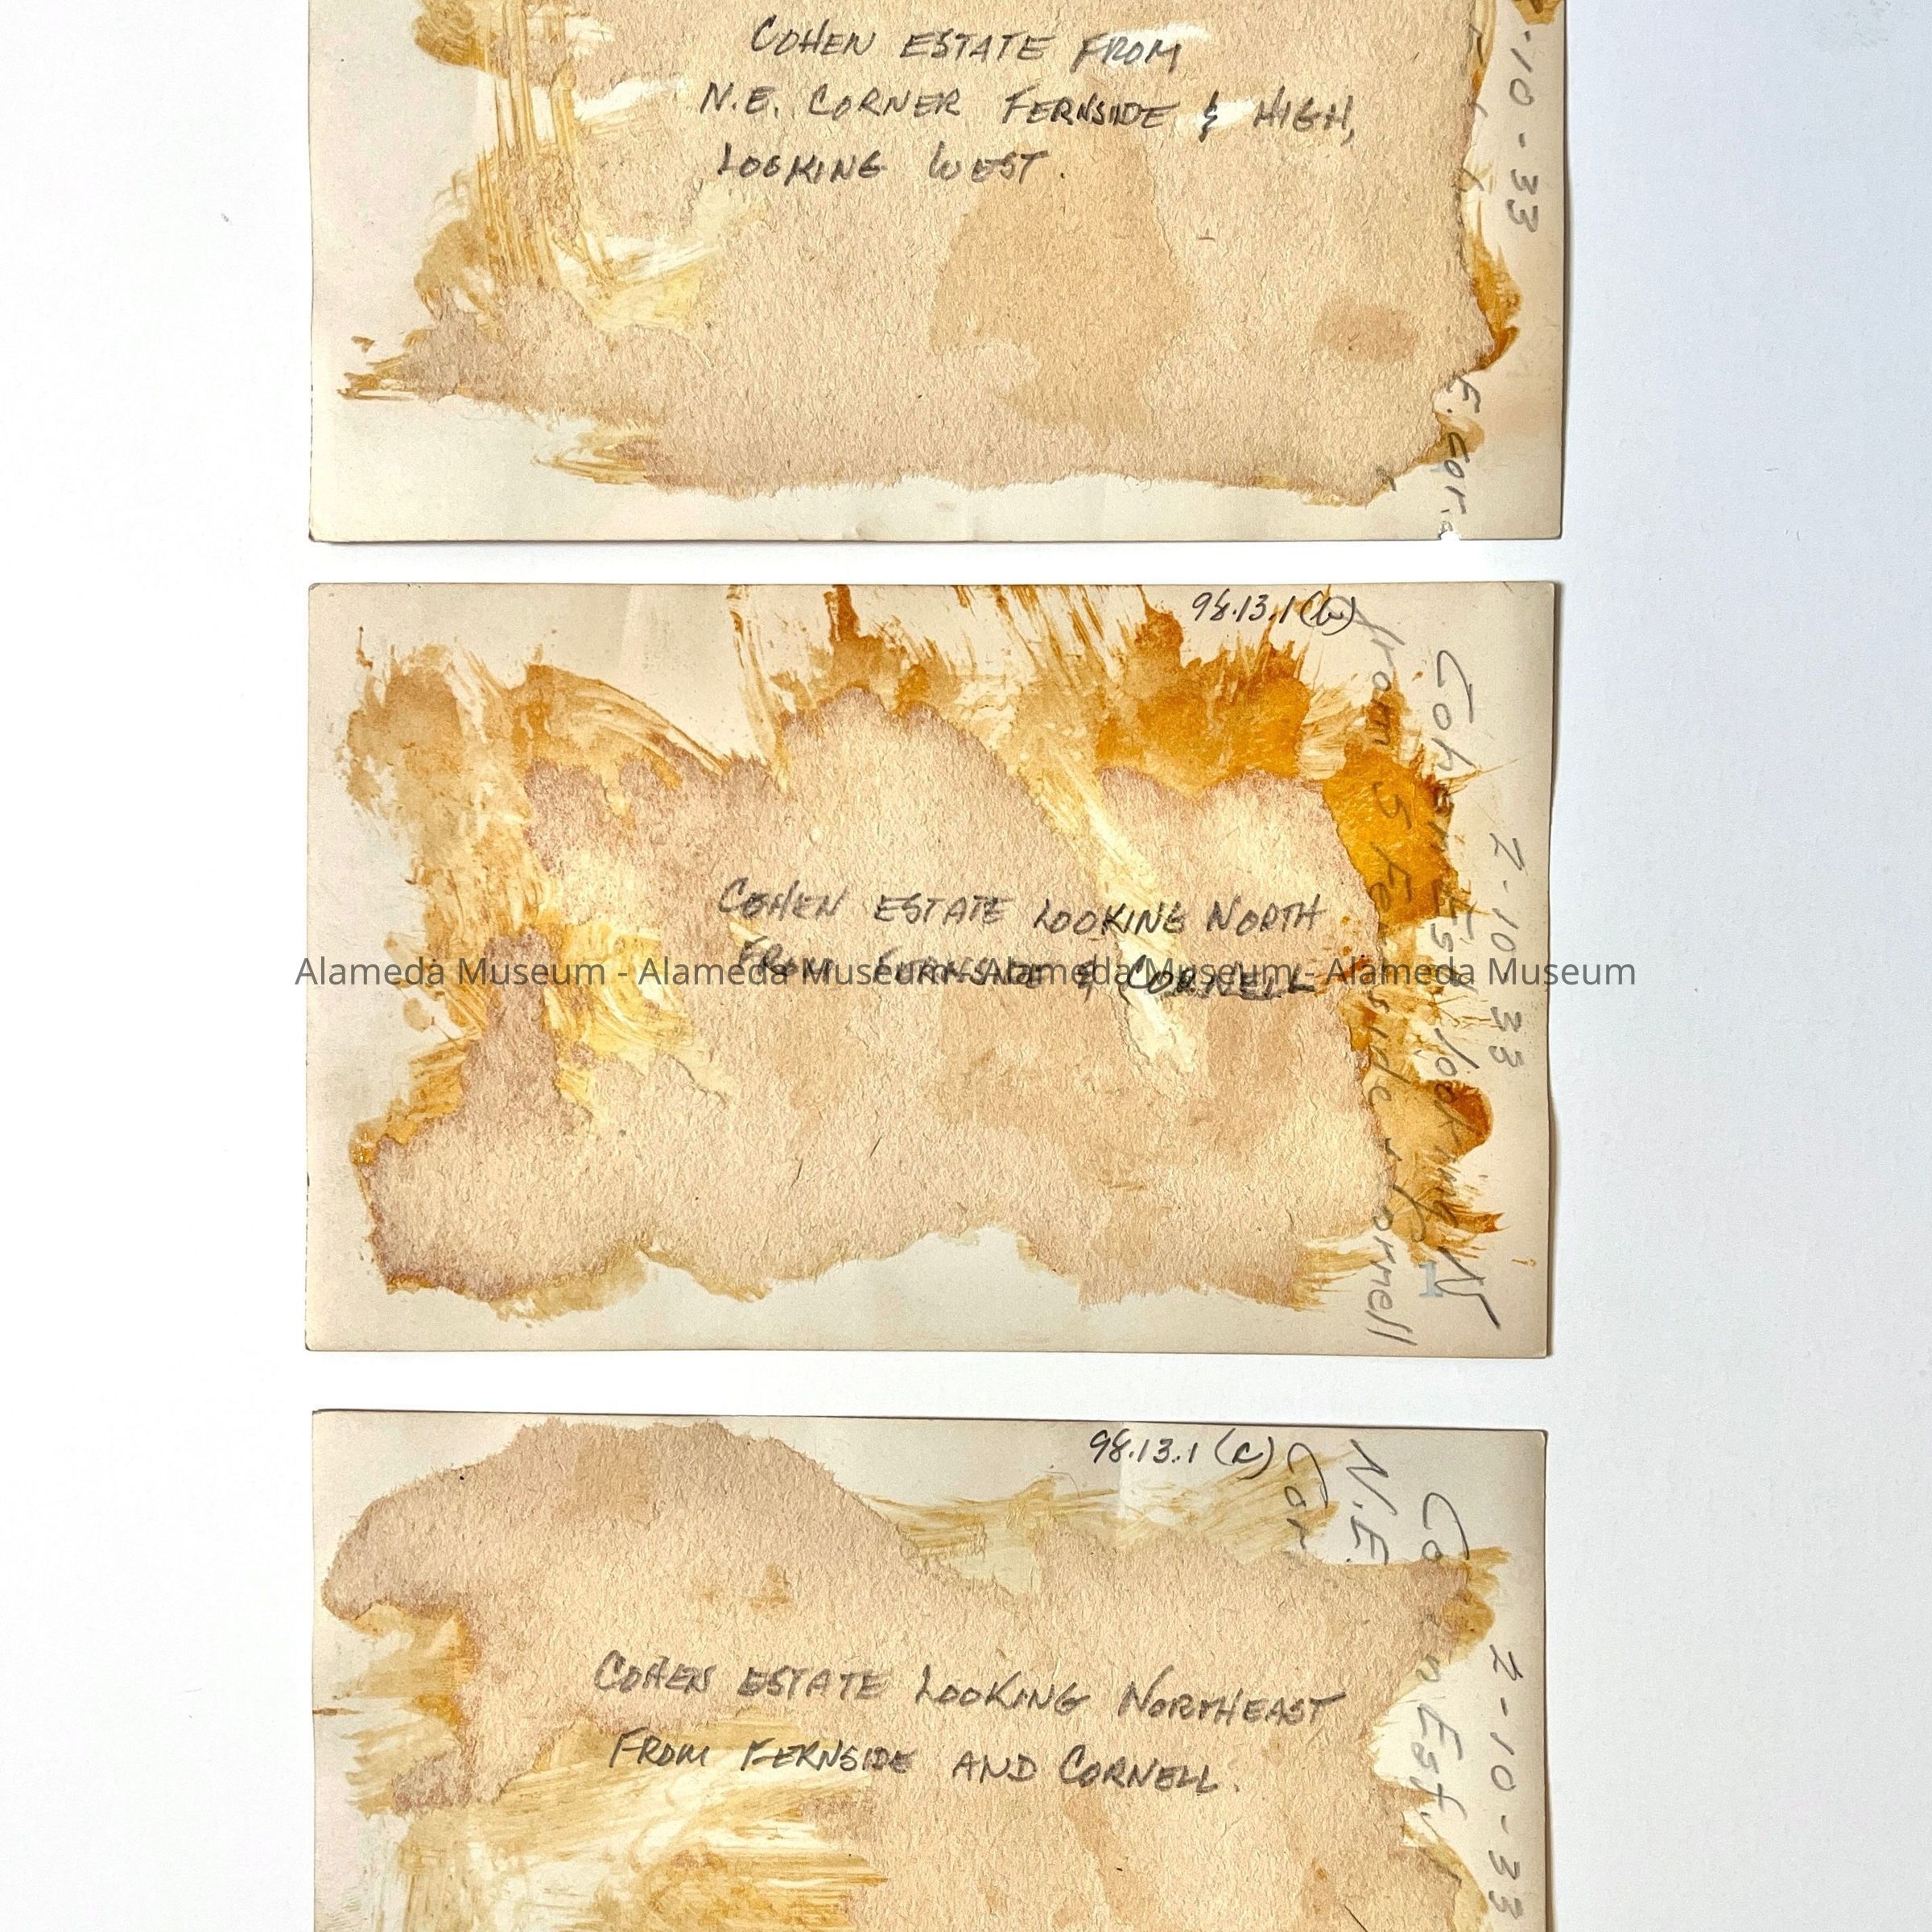 COHEN ESTATE FROM
N.E. CORNER FERNSIDE & HIGH,
LOOKING WEST.
-10-33
E. Cor.
98.13.1(b)
COHEN ESTATE LOOKING NORTH
FROM FERNSIDE & CORNELL
2-10-33
Cohen Est. looking N
from Fernside & Cornell
Alameda Museum - Alameda Museum - Alameda Museum - Alameda Museum
98.13.1(c)
COHEN ESTATE LOOKING NORTHEAST
FROM FERNSIDE AND CORNELL.
2-10-33
Est.
N.E.
Cor